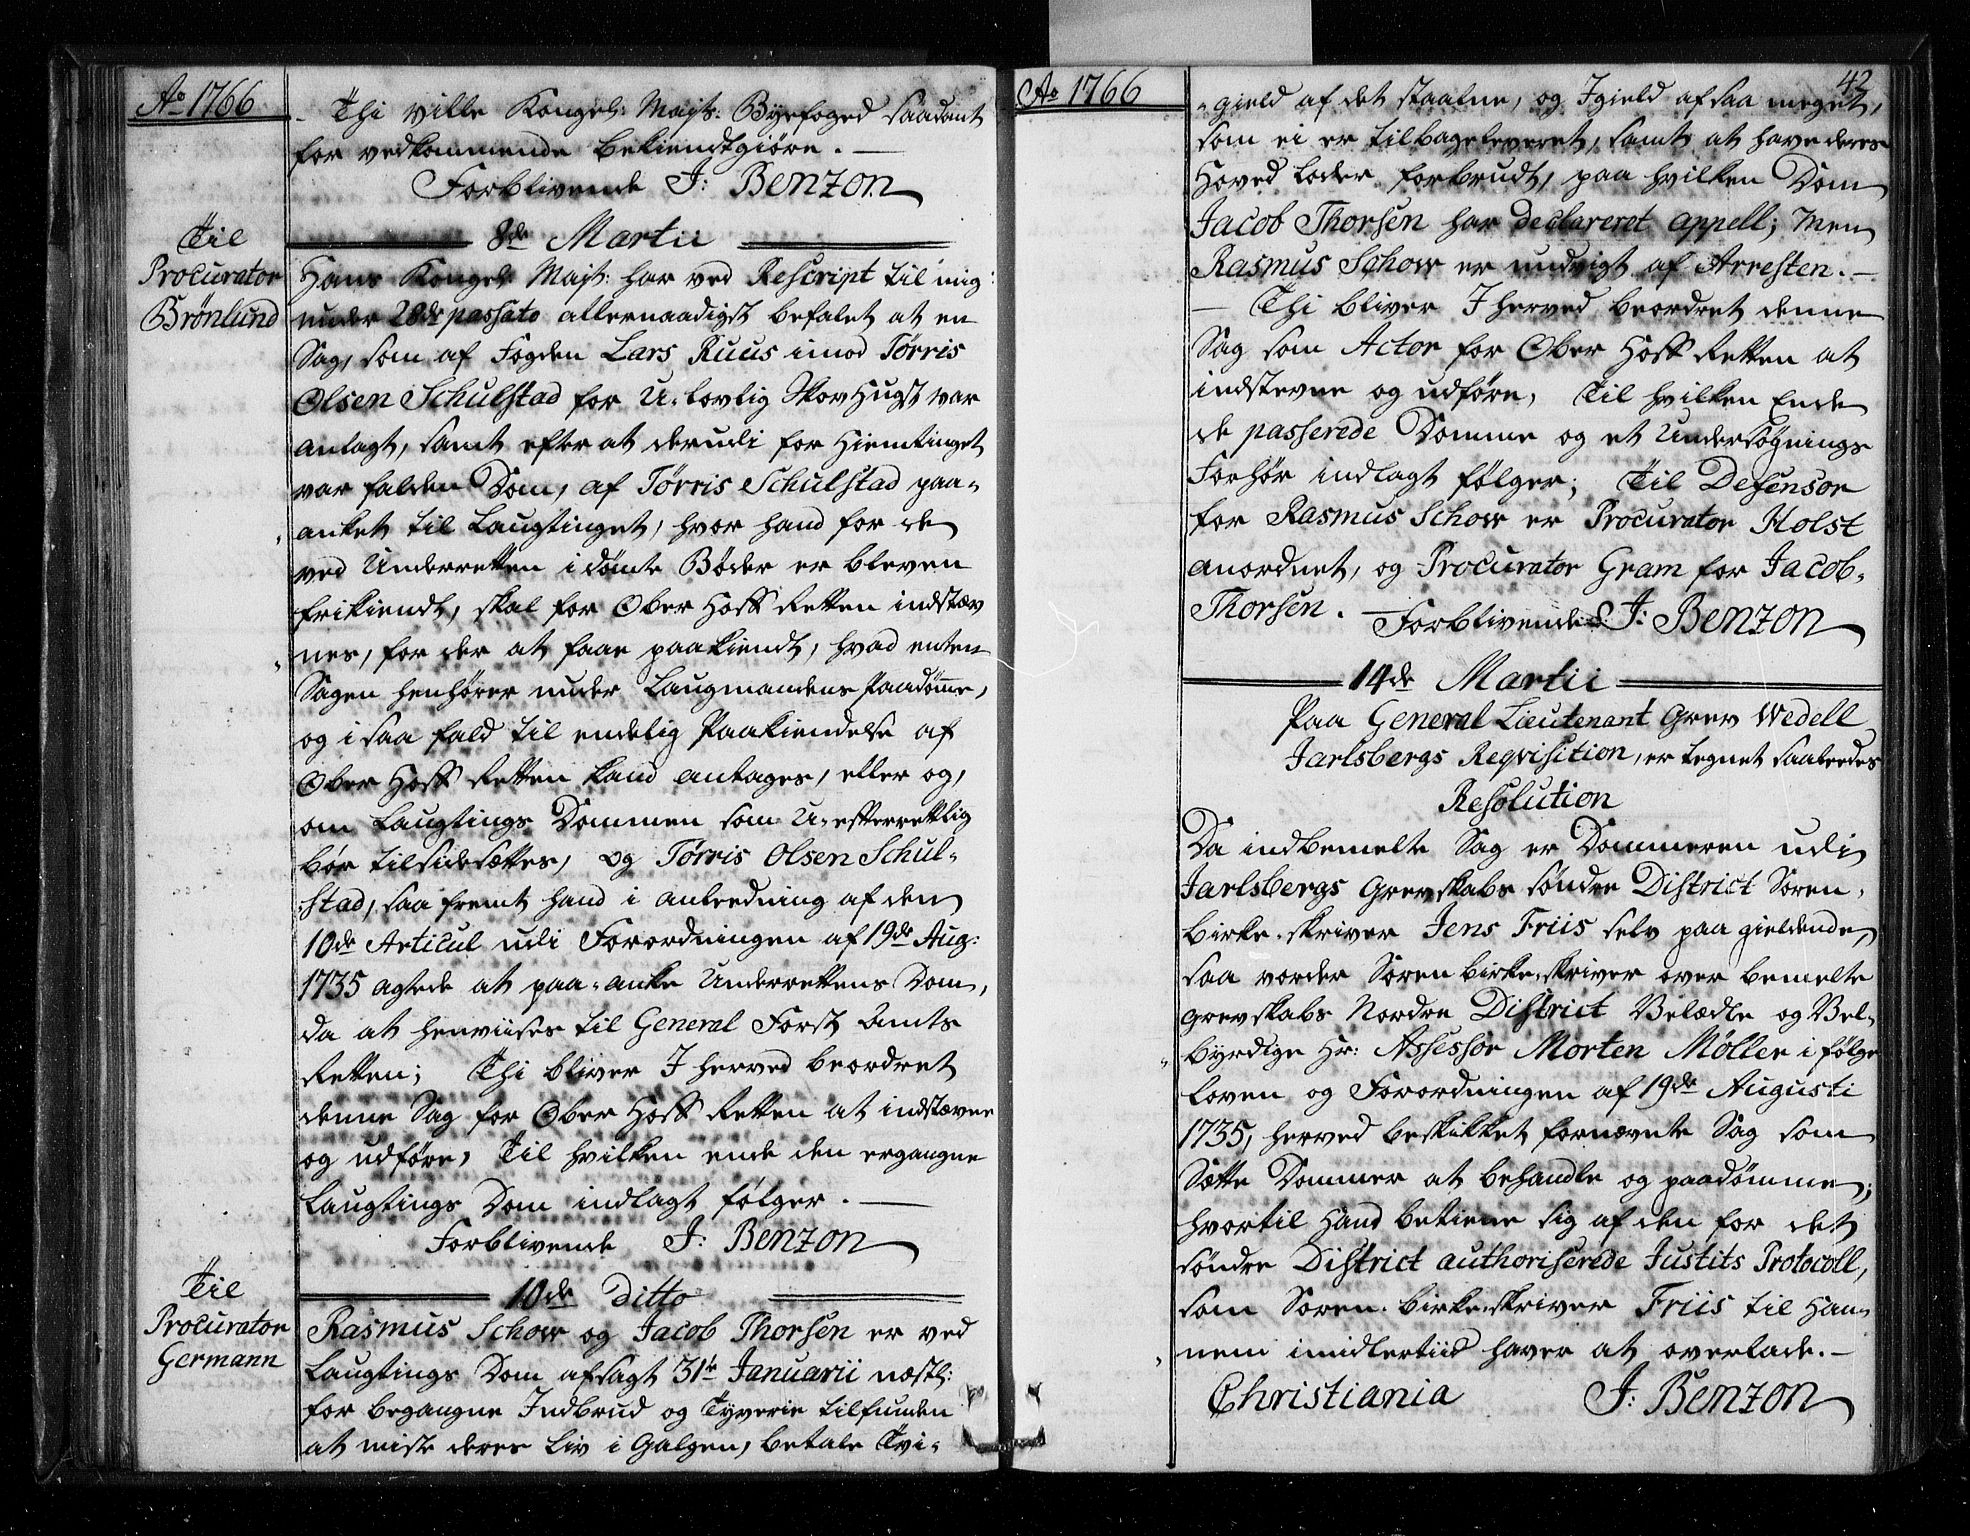 Ao 1766
Thi ville Kongel: Mayts: Byefoged saadant
for vedkommende bekiendtgiøre. —
Forblivende J: Benzon
8de Martii
Til
Procurator
Brønlund
Hans Kongel: Mayt: har ved Rescript til mig
under 28de passato allernaadigst befalet at en
Sag, som af Fogden Lars Ruus imod Tørris
Olsen Schulstad for U-lovlig Skov Hugst var
anlagt, samt efter at derudi for Hiemtinget
var falden Dom, af Tørris Schulstad paa-
anket til Laugtinget, hvor hand for de
ved Underretten idømte Bøder er bleven
frikiendt, skal for Ober Hoff Retten indstæv
nes, for der at faae paakiendt, hvad enten
Sagen henhører under Laugmandens Paadømme,
og i saa fald til endelig Paakiendelse af
Ober Hoff Retten kand antages, eller og,
om Laugtings Dommen som U-efterrettlig
bør tilsidesættes, og Tørris Olsen Schul-
stad, saa fremt hand i anledning af den
10de Articul udi Forordningen af 19de Aug:
1735 agtede at paa-anke Underrettens Dom,
da at henviises til General Forst Amts
Retten; Thi bliver I herved beordret
denne Sag for Ober Hoff Retten at indstævne
og udføre, Til hvilken ende den ergangne
Laugtings Dom indlagt følger. —
Forblivende J: Benzon
10de Ditto
Til
Procurator
Germann
Rasmus Schow og Jacob Thorsen er ved
Laugtings Dom afsagt 31te Januarii næstl:
for begangne Indbrud og Tyverie tilfunden
at miste deres Liv i Galgen, betale Tvi-
Ao 1766
42
-gield af det staalne, og Igield af saa meget,
som ei er tilbageleveret, samt at have deres
Hoved Loder forbrudt, paa hvilken Dom
Jacob Thorsen har declareret appell; Men
Rasmus Schow er undvigt af Arresten. —
— Thi bliver I herved beordret denne
Sag som Actor for Ober Hoff Retten at
indstevne og udføre, Til hvilken Ende
de passerede Domme og et Undersøgnings
Forhør indlagt følger; Til Defensor
for Rasmus Schow er Procurator Holst
anordnet, og Procurator Gram for Jacob
Thorsen. — Forblivende J: Benzon
14de Martii
Paa General Lieutenant Grev Wedell
Jarlsbergs Reqvisition, er tegnet saaledes
Resolution
Da indbemelte Sag er Dommeren udi
Jarlsbergs Grevskabs søndre District Soren-
Birke-skriver Jens Friis selv paa gieldende,
saa vorder Sorenbirke-skriver over bemelte
Grevskabs Nordre District Velædle og Vel-
byrdige Hr: Assessor Morten Møller i følge
Loven og Forordningen af 19de Augusti
1735, herved beskikket fornævnte Sag som
Sætte Dommer at behandle og paadømme;
hvortil Hand betiene sig af den for det
søndre District authoriserede Justits Protocoll,
som Soren-birke-skriver Friis til Han-
nem imidlertiid haver at overlade. —
Christiania J: Benzon